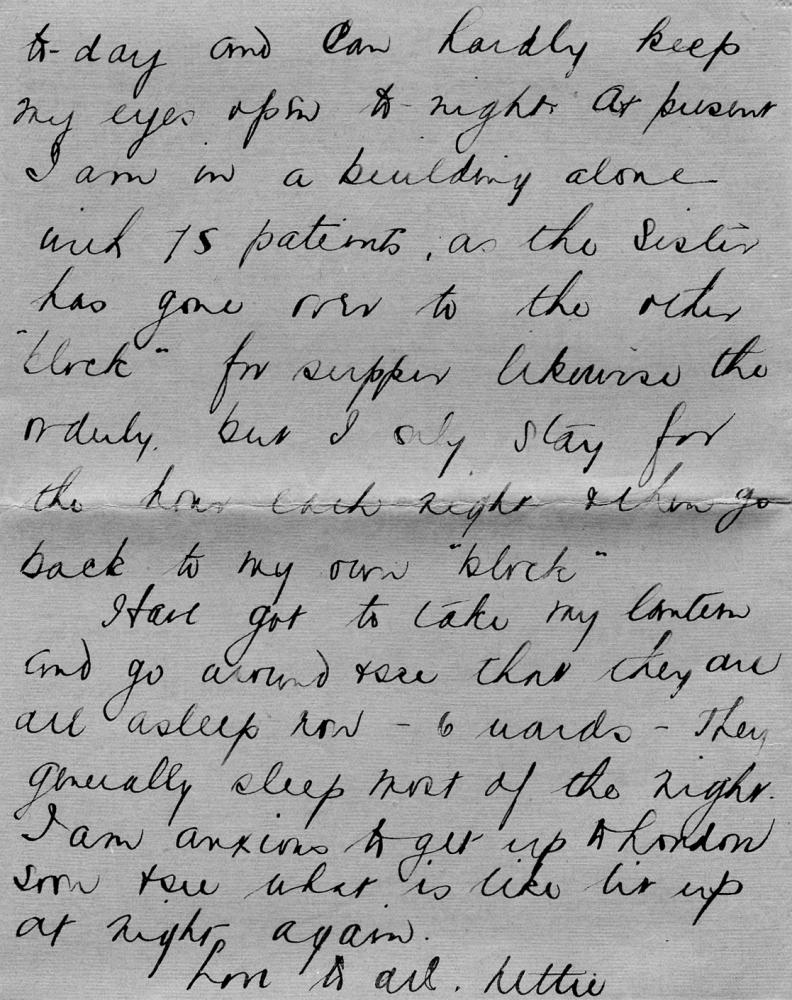 to-day and can hardly keep
my eyes open to-night. At present
I am in a building alone
with 75 patients, as the Sister
has gone over to the other
"block" for supper likewise the
orderly. but I only stay for
the hour each night & then go
back to my own "block"
Have got to take my lantern
and go around & see that they are
all asleep now - 6 wards - They
generally sleep most of the night.
I am anxious to get up to London
soon & see what is like lit up
at night again.
Love to all. Nettie